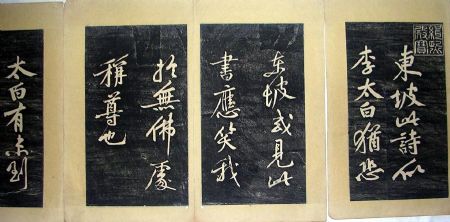 東坡此詩似
李太白猶恐
東坡或見此
書應笑我
於無佛處
稱尊也
太白有未到